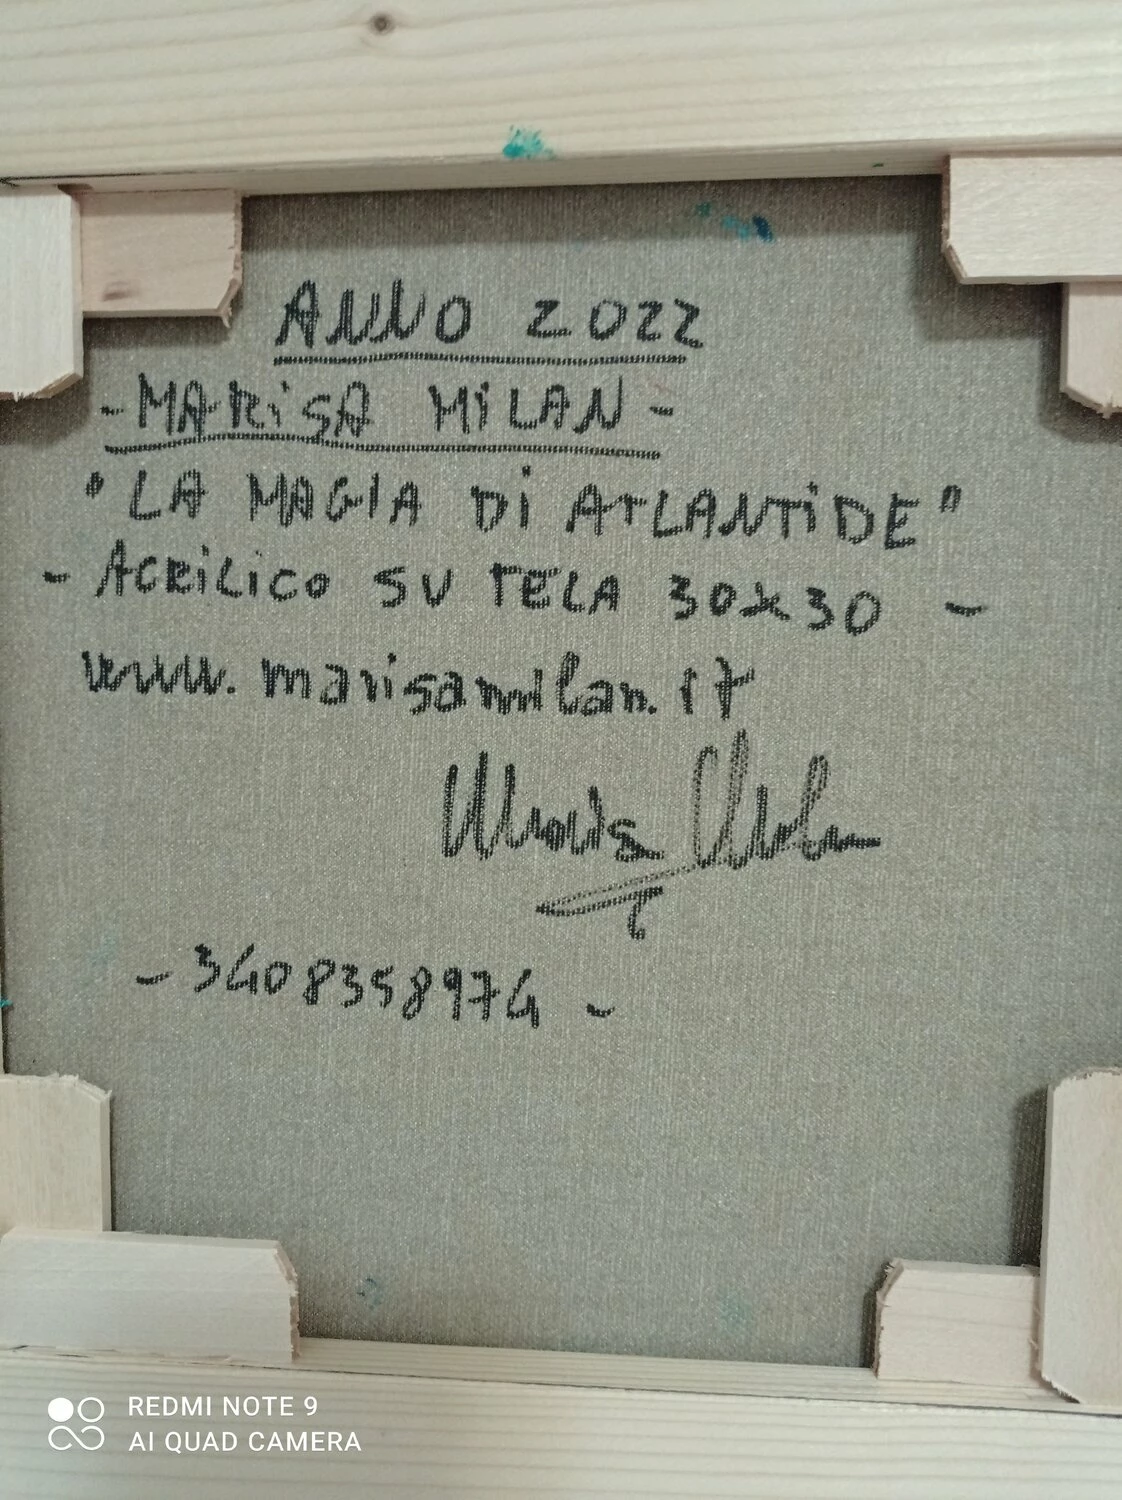 ANNO 2022
- MARiSA MiLAN -
"LA MAGIA Di ATLANTiDE"
- ACRiLiCO SU TELA 30x30 -
www.marisamilan.it
Marisa Milan
- 3408358974 -
REDMI NOTE 9
AI QUAD CAMERA